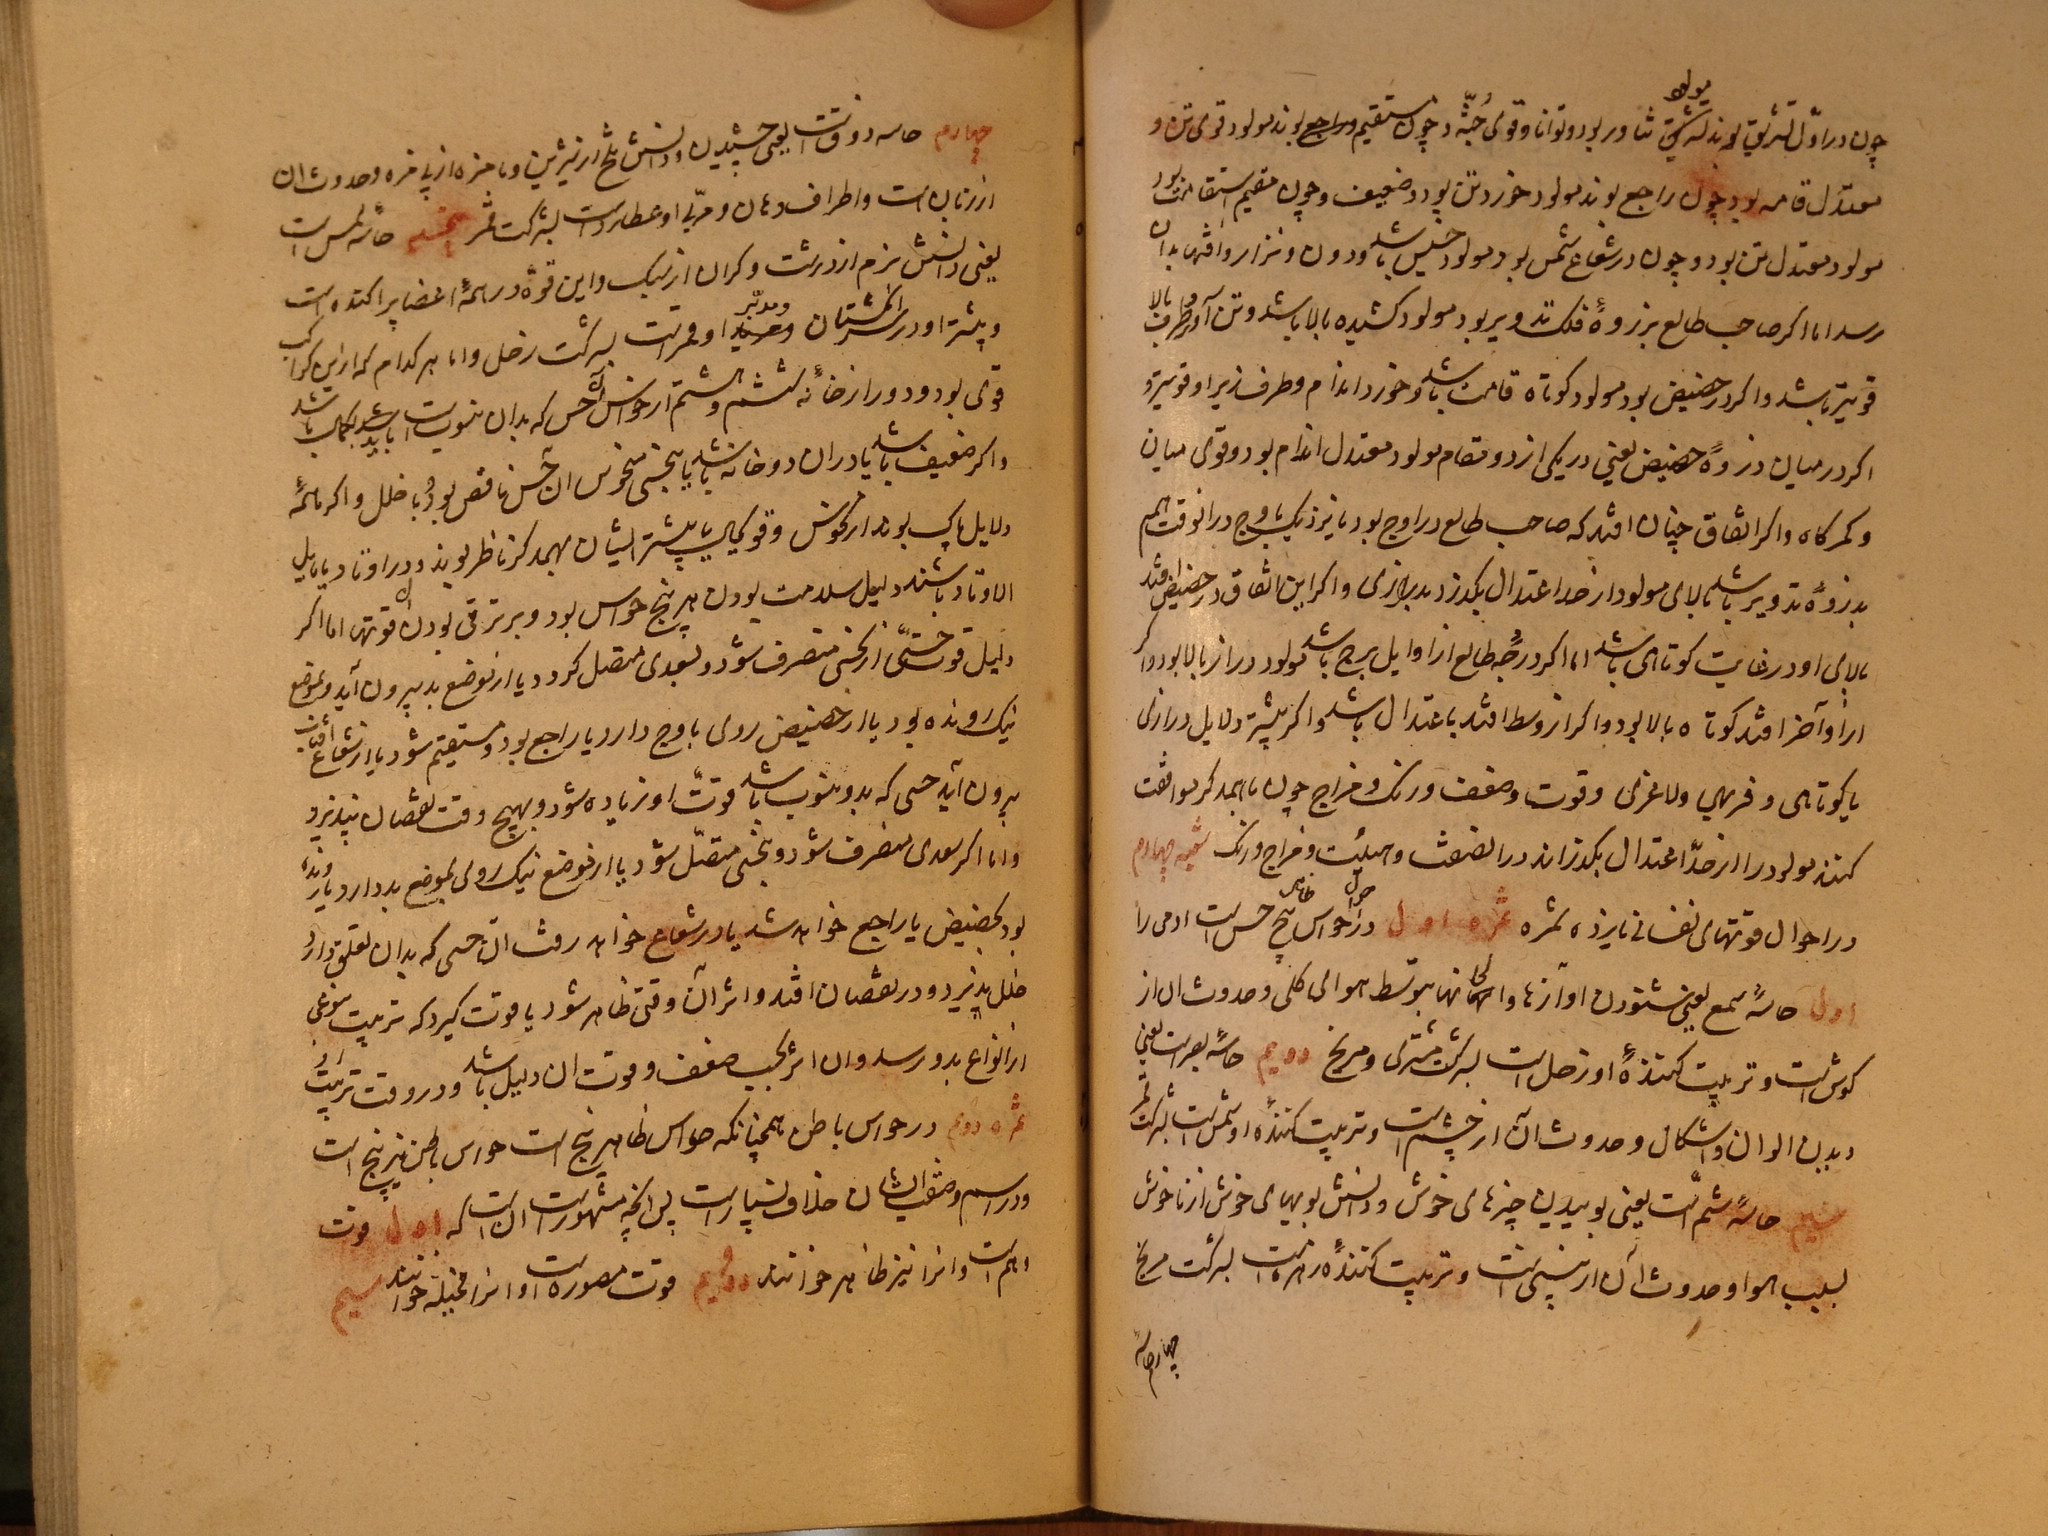 چون در اول تشریق بوند مولود تناور بود و توانا و قوی جثه و چون مستقیم و راجع بوند مولود قوی تن و
معتدل قامه بود چون راجع بوند مولود خورد تن بود و ضعیف و چون مقیم استقامت بود
مولود معتدل تن بود و چون در شعاع شمس بود مولود خسیس باشد و دون و نزار و آفتها بدان
رسد اما اکر صاحب طالع بر ذروهٔ فلک تدویر بود مولود کشیده بالا باشد و تن آور و طرف بالا
قویتر باشد و اکر در حضیض بود مولود کوتاه قامت باشد و خورد اندام و طرف زیر او قویتر و
اکر در میان ذروهٔ حضیض یعنی در یکی از دو مقام مولود معتدل اندام بود و قوی میان
و کمرکاه و اکر اتفاق چنان افتد که صاحب طالع در اوج بود یا نزدیک باوج در آنوقت هم
بذروهٔ تدویر باشد بالای مولود از حد اعتدال بکذرد بدرازی و اکر این اتفاق در حضیض افتد
بالای او در غایت کوتاهی باشد اما اکر درجهٔ طالع از اوایل برج باشد مولود دراز بالا بود و اکر
از اواخر افتد کوتاه بالا بود و اکر از وسط افتد باعتدال باشد و اکر بیشتر دلایل درازی
یا کوتاهی و فربهی و لاغری و قوت و ضعف و رنک و مزاج چون با همدکر موافقت
کنند مولود را از حد اعتدال بکذراند در آنصفت و هیئت و مزاج و رنک شعبه چهارم
در احوال قوتهای نفسانی پانزده ثمره ثمره اول در احوال حواس ظاهر پنج حس است ادمی را
اول حاسهٔ سمع یعنی شنودن اوازها و الحانها بتوسط هوای کلی و حدوث ان از
کوش است و تربیت کنندهٔ او زحل است بشرکت مشتری و مریخ دویم حاسهٔ بصر است یعنی
دیدن الوان و اشکال و حدوث آن از چشم است و تربیت کنندهٔ او شمس است بشرکت قمر
سیم حاسهٔ شم است یعنی بوییدن چیزهای خوش و دانستن بویهای خوش از ناخوش
بسبب هوا و حدوث آن از بینی است و تربیت کنندهٔ زهره است بشرکت مریخ
چهارم حاسهٔ
چهارم حاسه ذوقست یعنی چشیدن و دانستن تلخ از شیرین و با مزه از بی مزه و حدوث ان
از زبان است و اطراف دهان و مربی او عطارد است بشرکت قمر پنجم حاسهٔ لمس است
یعنی دانستن نرم از درشت و کران از سبک و این قوة در همهٔ اعضا پراکنده است
و بیشتر او در سر انکشتان و مدبر او قمر است بشرکت زحل و اما هر کدام که از این کواکب
قوی بود و دور از خانهٔ ششم و هشتم از حواس آن حس که بدان منسوبست باید بکمال باشد
و اکر ضعیف باشد یا در ان دو خانه باشد یا بنحسی منحوس ان حس ناقص بود و با خلل و اکر همهٔ
دلایل پاک بوند از نحوس و قوی یا بیشتر ایشان بهمدکر ناظر بوند و در اوتاد یا مایل
الاوتاد باشند دلیل سلامت بودن هر پنج حواس بود و بر ترقی بودن ان قوتها اما اکر
دلیل قوت حسی از نحسی منصرف شود و بسعدی متصل کردد یا از موضع بد بیرون آید و بموضع
نیک رونده بود یا از حضیض روی باوج دارد یا راجع بود و مستقیم شود یا از شعاع آفتاب
بیرون آید حسی که بدو منسوب باشد قوت او زیاده شود و بهیچ وقت نقصان نپذیرد
و اما اکر سعدی منصرف شود و بنحسی متصل شود یا از موضع نیک روی بموضع بد دارد یا رونده
بود بحضیض یا راجع خواهد شد یا در شعاع خواهد رفت ان حسی که بدان تعلق دارد
خلل پذیرد و در نقصان افتد و اثر آن وقتی ظاهر شود یا قوت کیرد که تربیت بنوعی
از انواع بدو رسد و ان اثر بحسب ضعف و قوت ان دلیل باشد و در وقت تربیت او
ثمره دویم در حواس باطن همچنانکه حواس ظاهر پنج است حواس باطن نیز پنج است
و در اسم و صفت ایشان خلاف بسیار است پس انچه مشهور است ان است که اول قوت
وهم است و انرا نیز ظاهر خوانند دویم قوت مصوره است و انرا مخیله خوانند سیم